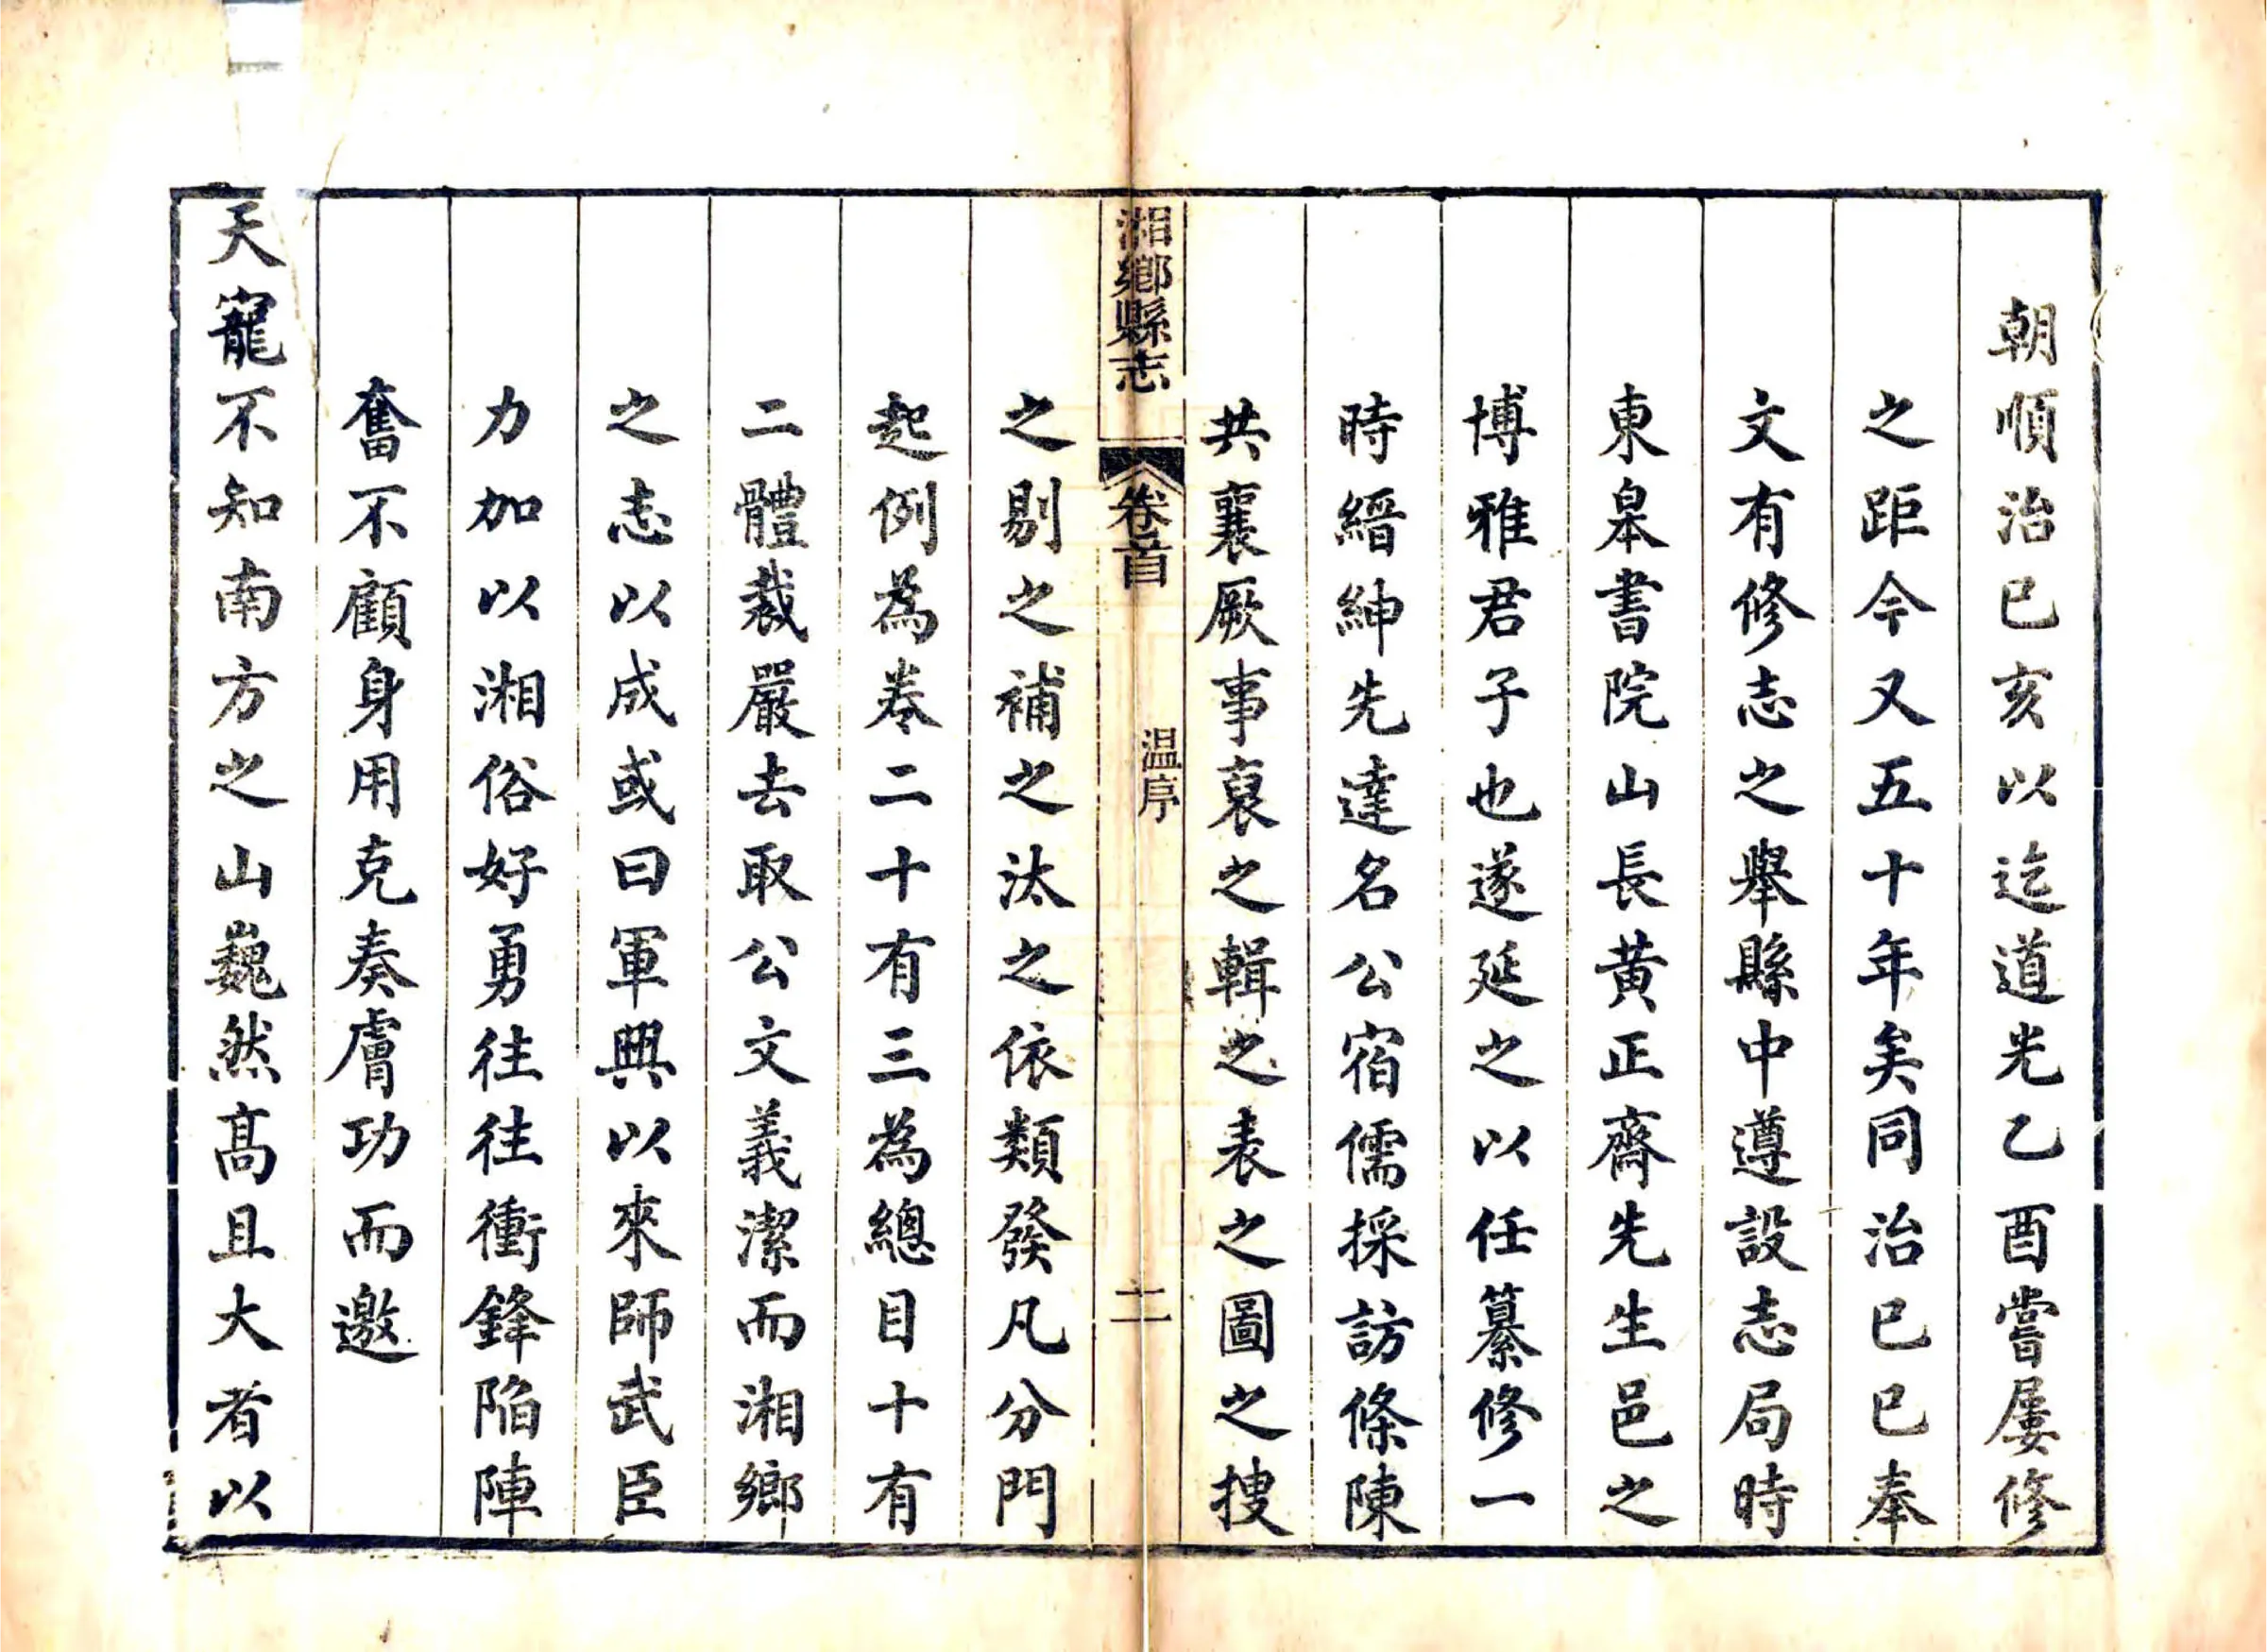 朝順治已亥以迄道光乙酉嘗屢修
之距今又五十年矣同治已巳奉
文有修志之舉縣中遵設志局時
東皋書院山長黃正齋先生邑之
博雅君子也遂延之以任纂修一
時縉紳先達名公宿儒採訪條陳
共襄厥事裒之輯之表之圖之搜
湘鄉縣志 卷首 温序 二
之剔之補之汰之依類發凡分門
起例為卷二十有三為總目十有
二體裁嚴去取公文義潔而湘鄉
之志以成或曰軍興以來師武臣
力加以湘俗好勇往往衝鋒陷陣
奮不顧身用克奏膚功而邀
天寵不知南方之山巍然高且大者以